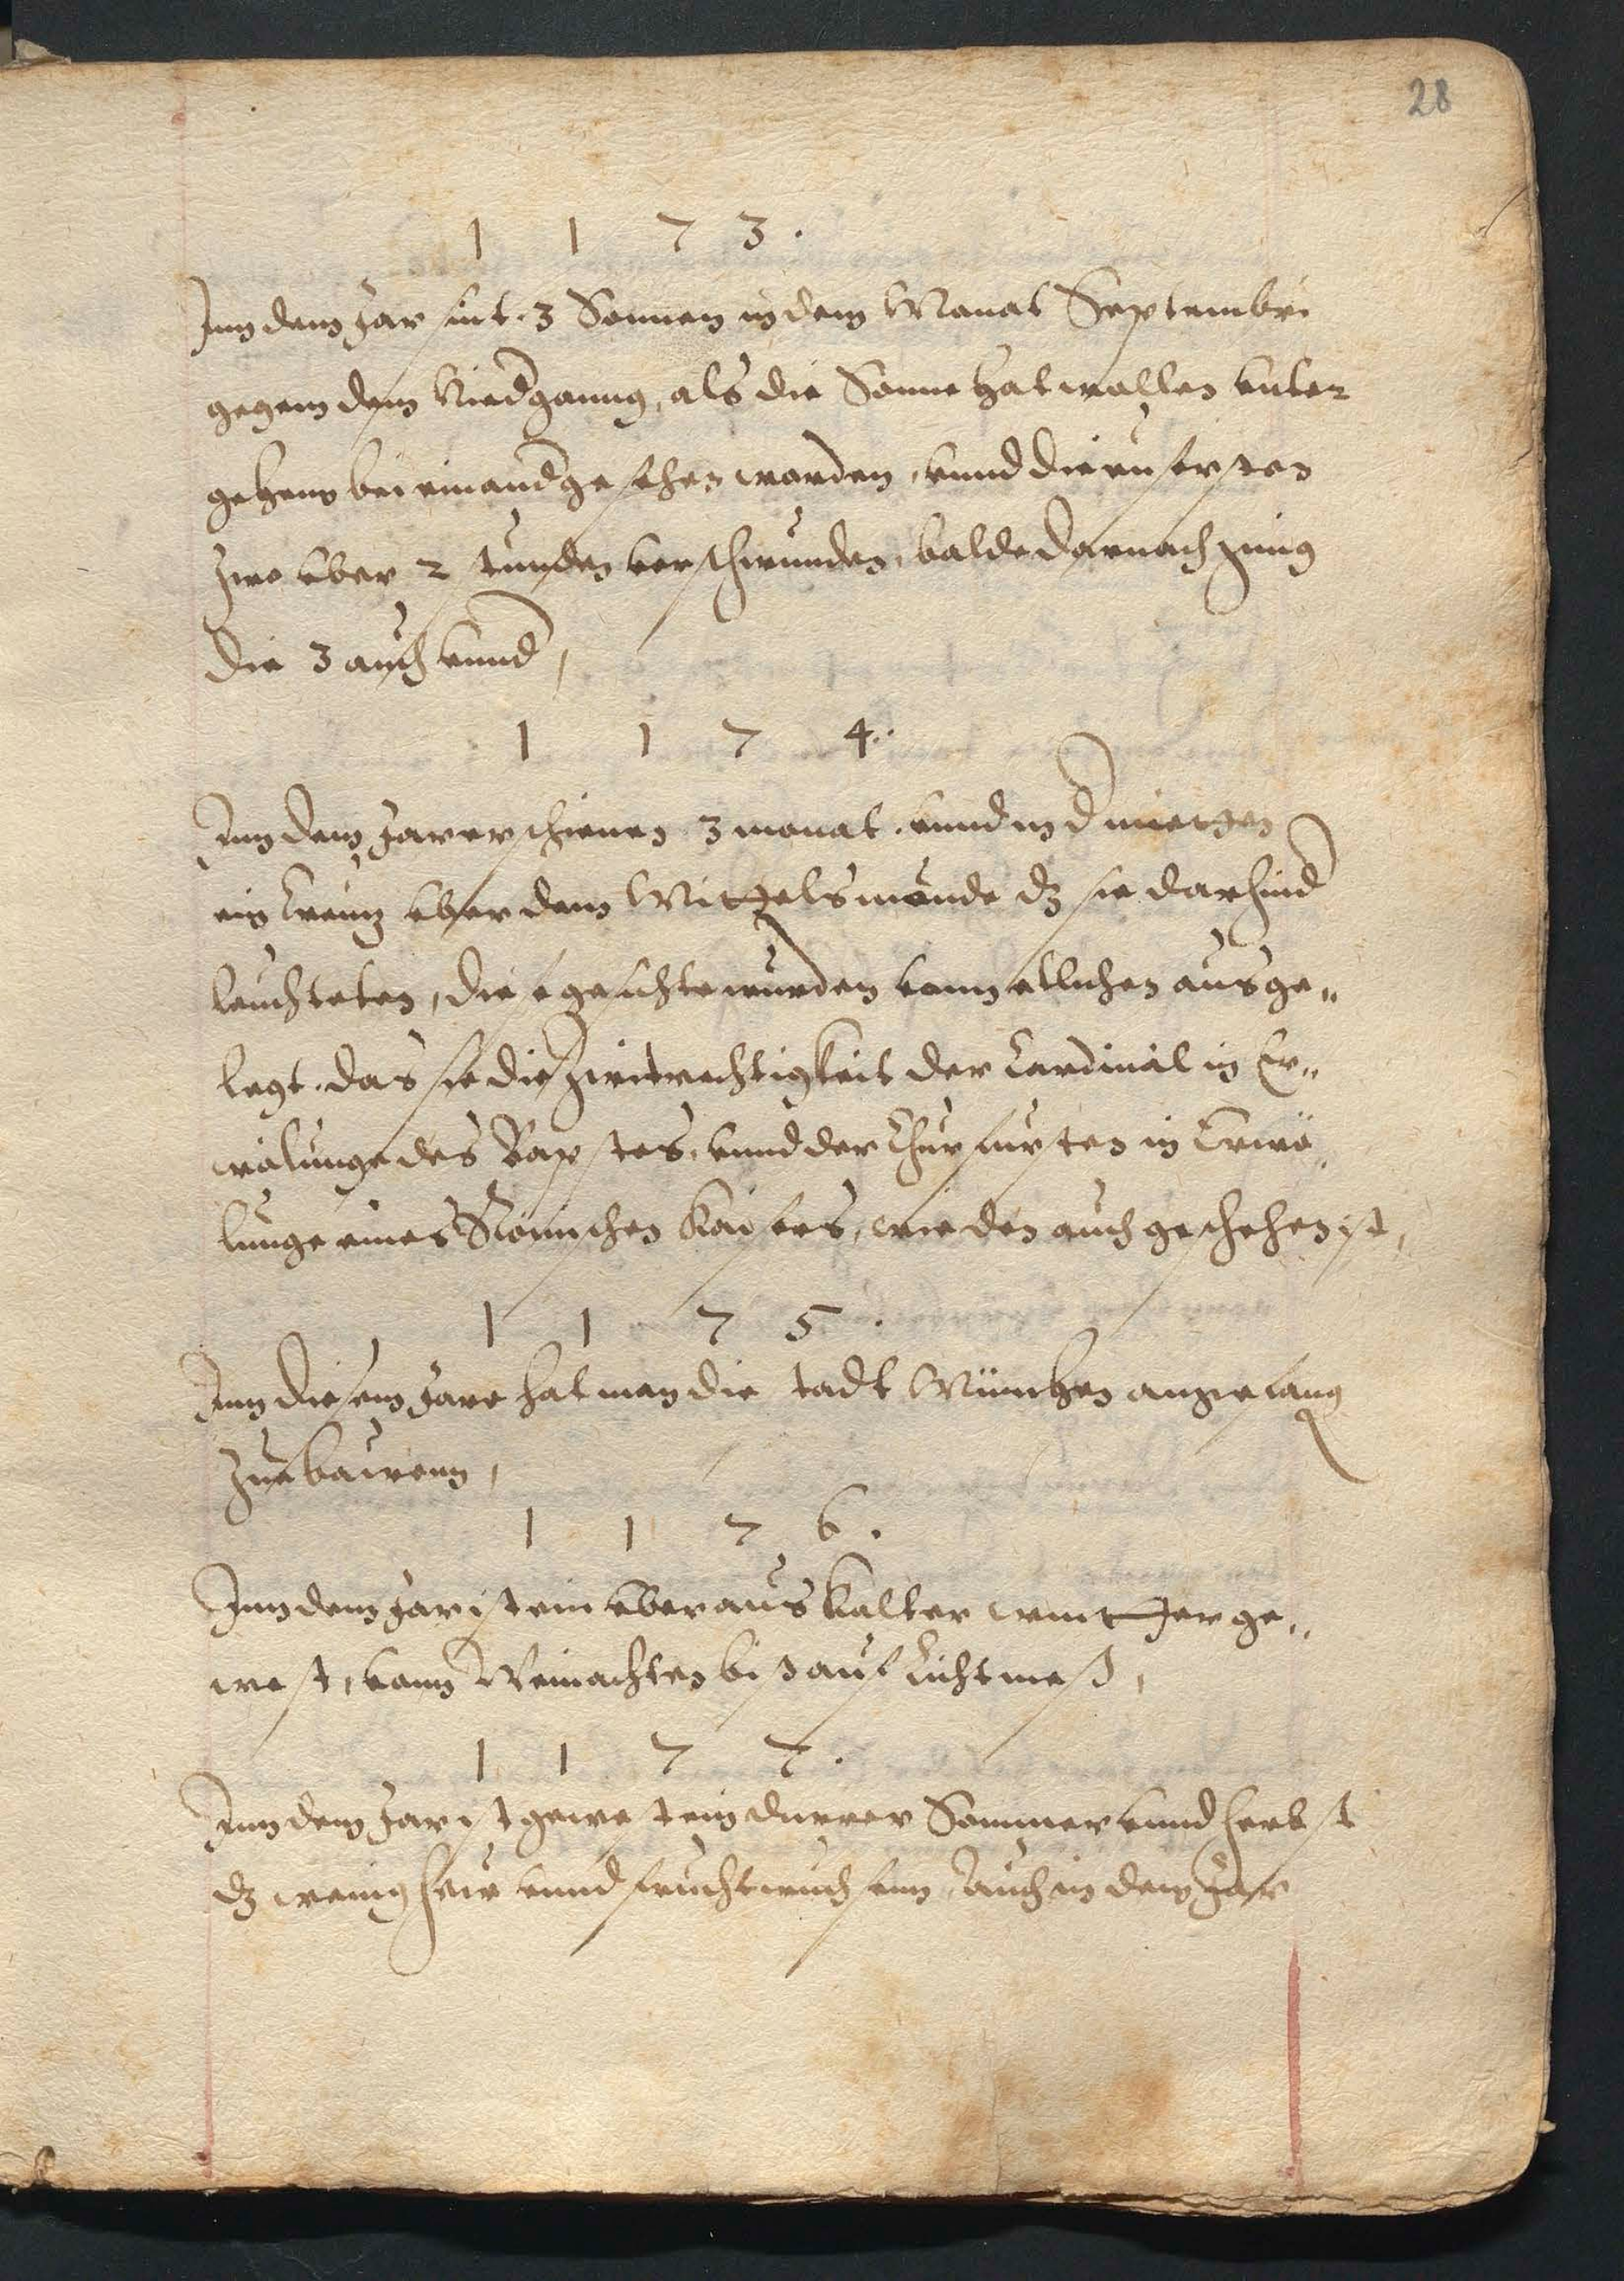 28
1 1 7 3.
Inn dem Jar sint. 3 Sonnen in dem Monat Septembri
gegem dem Niedgannng, als die Sonne hat wollen vnter
gehenn bei einand gesehen worden, vnnd die eusersten
zwo vber 2 stunden verschwunden, balde darnach ging
die 3 auch vnnd,
1 1 7 4..
Inn dem Jar erschienen 3 monat. vnnd in d mietzen
ein Creutz vber dem Mittelsmonde dz sie darhind
leuchteten, diese gesichte wurden vonn etlichen ausge„
legt. das sie die Zwitrechtigkeit der Cardinal in Er„
wälunge des Bapstes, vnnd der Churfursten in Erwö„
lunge eines Römischen Kaisers, wie den auch geschehen ist,
1 1 7 5.
Inn diesem Jare hat man die stadt München angefang
zue bawenn,
1 1 7 6.
Inn dem Jar ist ein vberaus kalter wintter ge„
west, vonn Weinachten biß auf Lichtmeß,
1 1 7 7.
Inn dem Jar ist gewest ein durrer Sommer vnnd herbst
dz wenig hew vnnd frucht wuchsenn, Auch in dem Jar